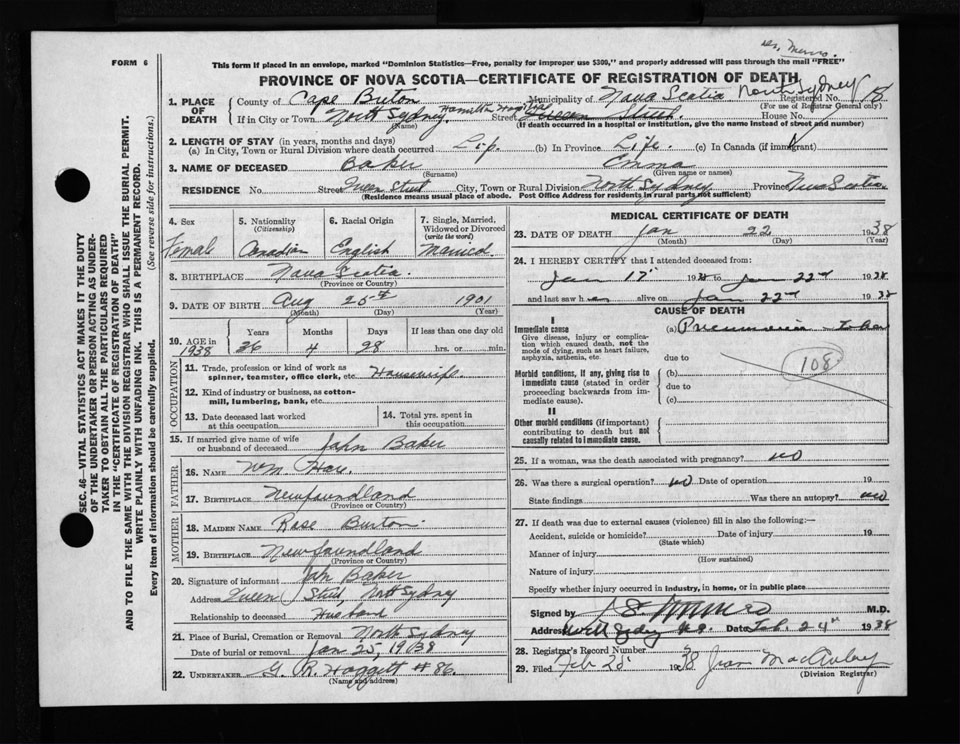 FORM 6
This form if placed in an envelope, marked "Dominion Statistics—Free, penalty for improper use $300," and properly addressed will pass through the mail "FREE"
PROVINCE OF NOVA SCOTIA—CERTIFICATE OF REGISTRATION OF DEATH
North Sydney
1. PLACE OF DEATH
County of Cape Breton Municipality of Nova Scotia Registered No. 18
(For use of Registrar General only)
If in City or Town North Sydney Hamilton Street Queen Street House No.
(Name) (If death occurred in a hospital or institution, give the name instead of street and number)
2. LENGTH OF STAY (in years, months and days)
(a) In City, Town or Rural Division where death occurred (b) In Province Life. (c) In Canada (if immigrant)
3. NAME OF DECEASED Baker Emma
(Surname) (Given name or names)
RESIDENCE No. Street Queen Street City, Town or Rural Division North Sydney Province Nova Scotia.
(Residence means usual place of abode. Post Office Address for residents in rural parts not sufficient)
4. Sex Female
5. Nationality (Citizenship) Canadian
6. Racial Origin English
7. Single, Married, Widowed or Divorced (write the word) Married
8. BIRTHPLACE Nova Scotia.
(Province or Country)
9. DATE OF BIRTH Aug 25th 1901
(Month) (Day) (Year)
10. AGE in 1938
Years Months Days If less than one day old
36 4 28 hrs. or min.
OCCUPATION
11. Trade, profession or kind of work as spinner, teamster, office clerk, etc. Housewife.
12. Kind of industry or business, as cotton-mill, lumbering, bank, etc.
13. Date deceased last worked at this occupation
14. Total yrs. spent in this occupation
15. If married give name of wife or husband of deceased John Baker
FATHER
16. NAME Wm
17. BIRTHPLACE Newfoundland
(Province or Country)
MOTHER
18. MAIDEN NAME Rose Burton.
19. BIRTHPLACE Newfoundland
(Province or Country)
20. Signature of informant John Baker
Address Queen Street, North Sydney
Relationship to deceased Husband
21. Place of Burial, Cremation or Removal North Sydney
Date of burial or removal Jan 25, 1938
22. UNDERTAKER G. R. Haggett # 86.
(Name and address)
MEDICAL CERTIFICATE OF DEATH
23. DATE OF DEATH Jan 22 1938
(Month) (Day) (Year)
24. I HEREBY CERTIFY that I attended deceased from:
Jan 17 1938 to Jan 22nd 1938
and last saw her alive on Jan 22nd 1938
CAUSE OF DEATH
I
Immediate cause
Give disease, injury or complication which caused death, not the mode of dying, such as heart failure, asphyxia, asthenia, etc.
(a) Pneumonia - Lobar
due to
108
Morbid conditions, if any, giving rise to immediate cause (stated in order proceeding backwards from immediate cause).
(b)
due to
(c)
II
Other morbid conditions (if important) contributing to death but not causally related to immediate cause.
25. If a woman, was the death associated with pregnancy? no
26. Was there a surgical operation? no Date of operation 19
State findings Was there an autopsy? no
27. If death was due to external causes (violence) fill in also the following:—
Accident, suicide or homicide? Date of injury 19
(State which)
Manner of injury
(How sustained)
Nature of injury
Specify whether injury occurred in industry, in home, or in public place
Signed by M.D.
Address North Sydney N.S. Date Feb. 24th 1938
28. Registrar's Record Number
29. Filed Feb 28 1938 Jean
(Division Registrar)
SEC. 46—VITAL STATISTICS ACT MAKES IT THE DUTY
OF THE UNDERTAKER OR PERSON ACTING AS UNDER-
TAKER TO OBTAIN ALL THE PARTICULARS REQUIRED
IN THE "CERTIFICATE OF REGISTRATION OF DEATH"
AND TO FILE THE SAME WITH THE DIVISION REGISTRAR WHO SHALL ISSUE THE BURIAL PERMIT.
WRITE PLAINLY WITH UNFADING INK. THIS IS A PERMANENT RECORD.
Every item of information should be carefully supplied. (See reverse side for instructions.)